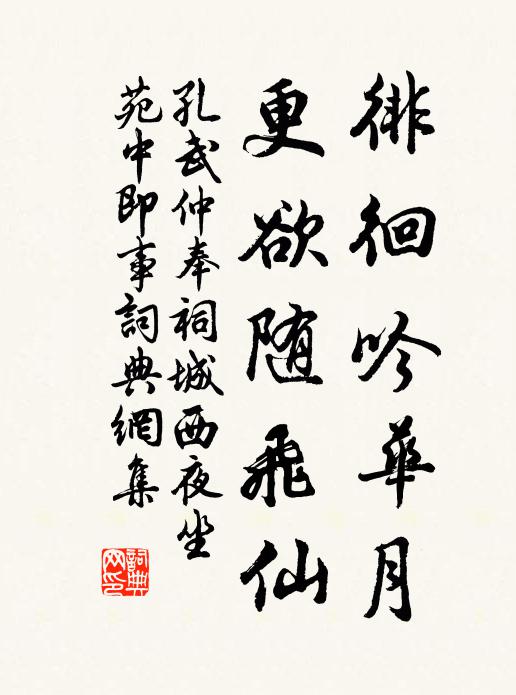 徘徊吟華月
更欲随飛仙
孔武仲奉祠城西夜坐
苑中即事詞典網集
詞典網印